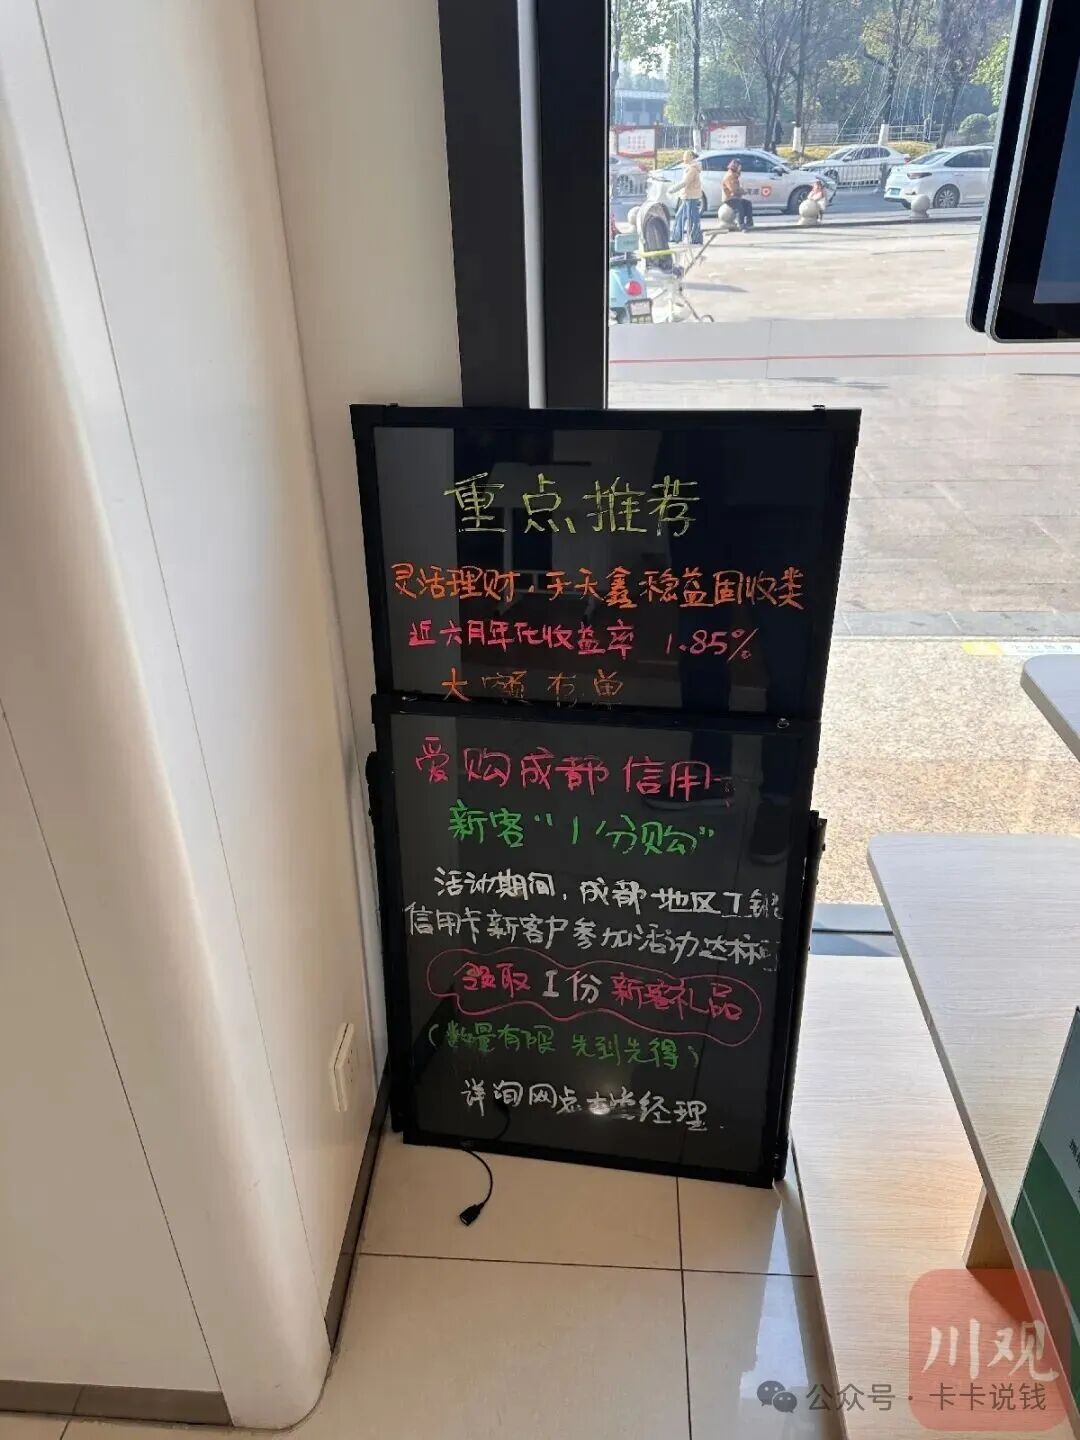 重点推荐
灵活理财,天天鑫稳益固收类
近六月年化收益率 1.85%
大额存单
爱购成都信用卡
新客“1分购”
活动期间,成都地区工银
信用卡新客户参加活动达标
领取1份新客礼品
(数量有限 先到先得)
详询网点大堂经理.
川观
公众号·卡卡说钱